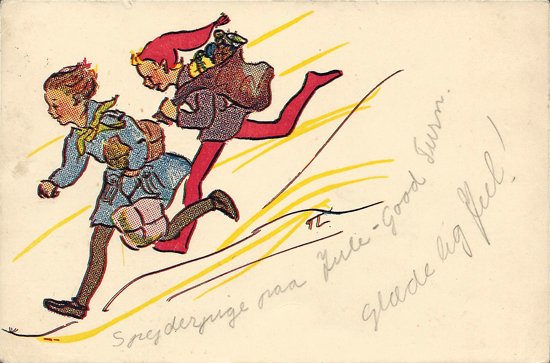 Spejderpige paa Jule-Good Turn.
Glædelig Jul!
TL